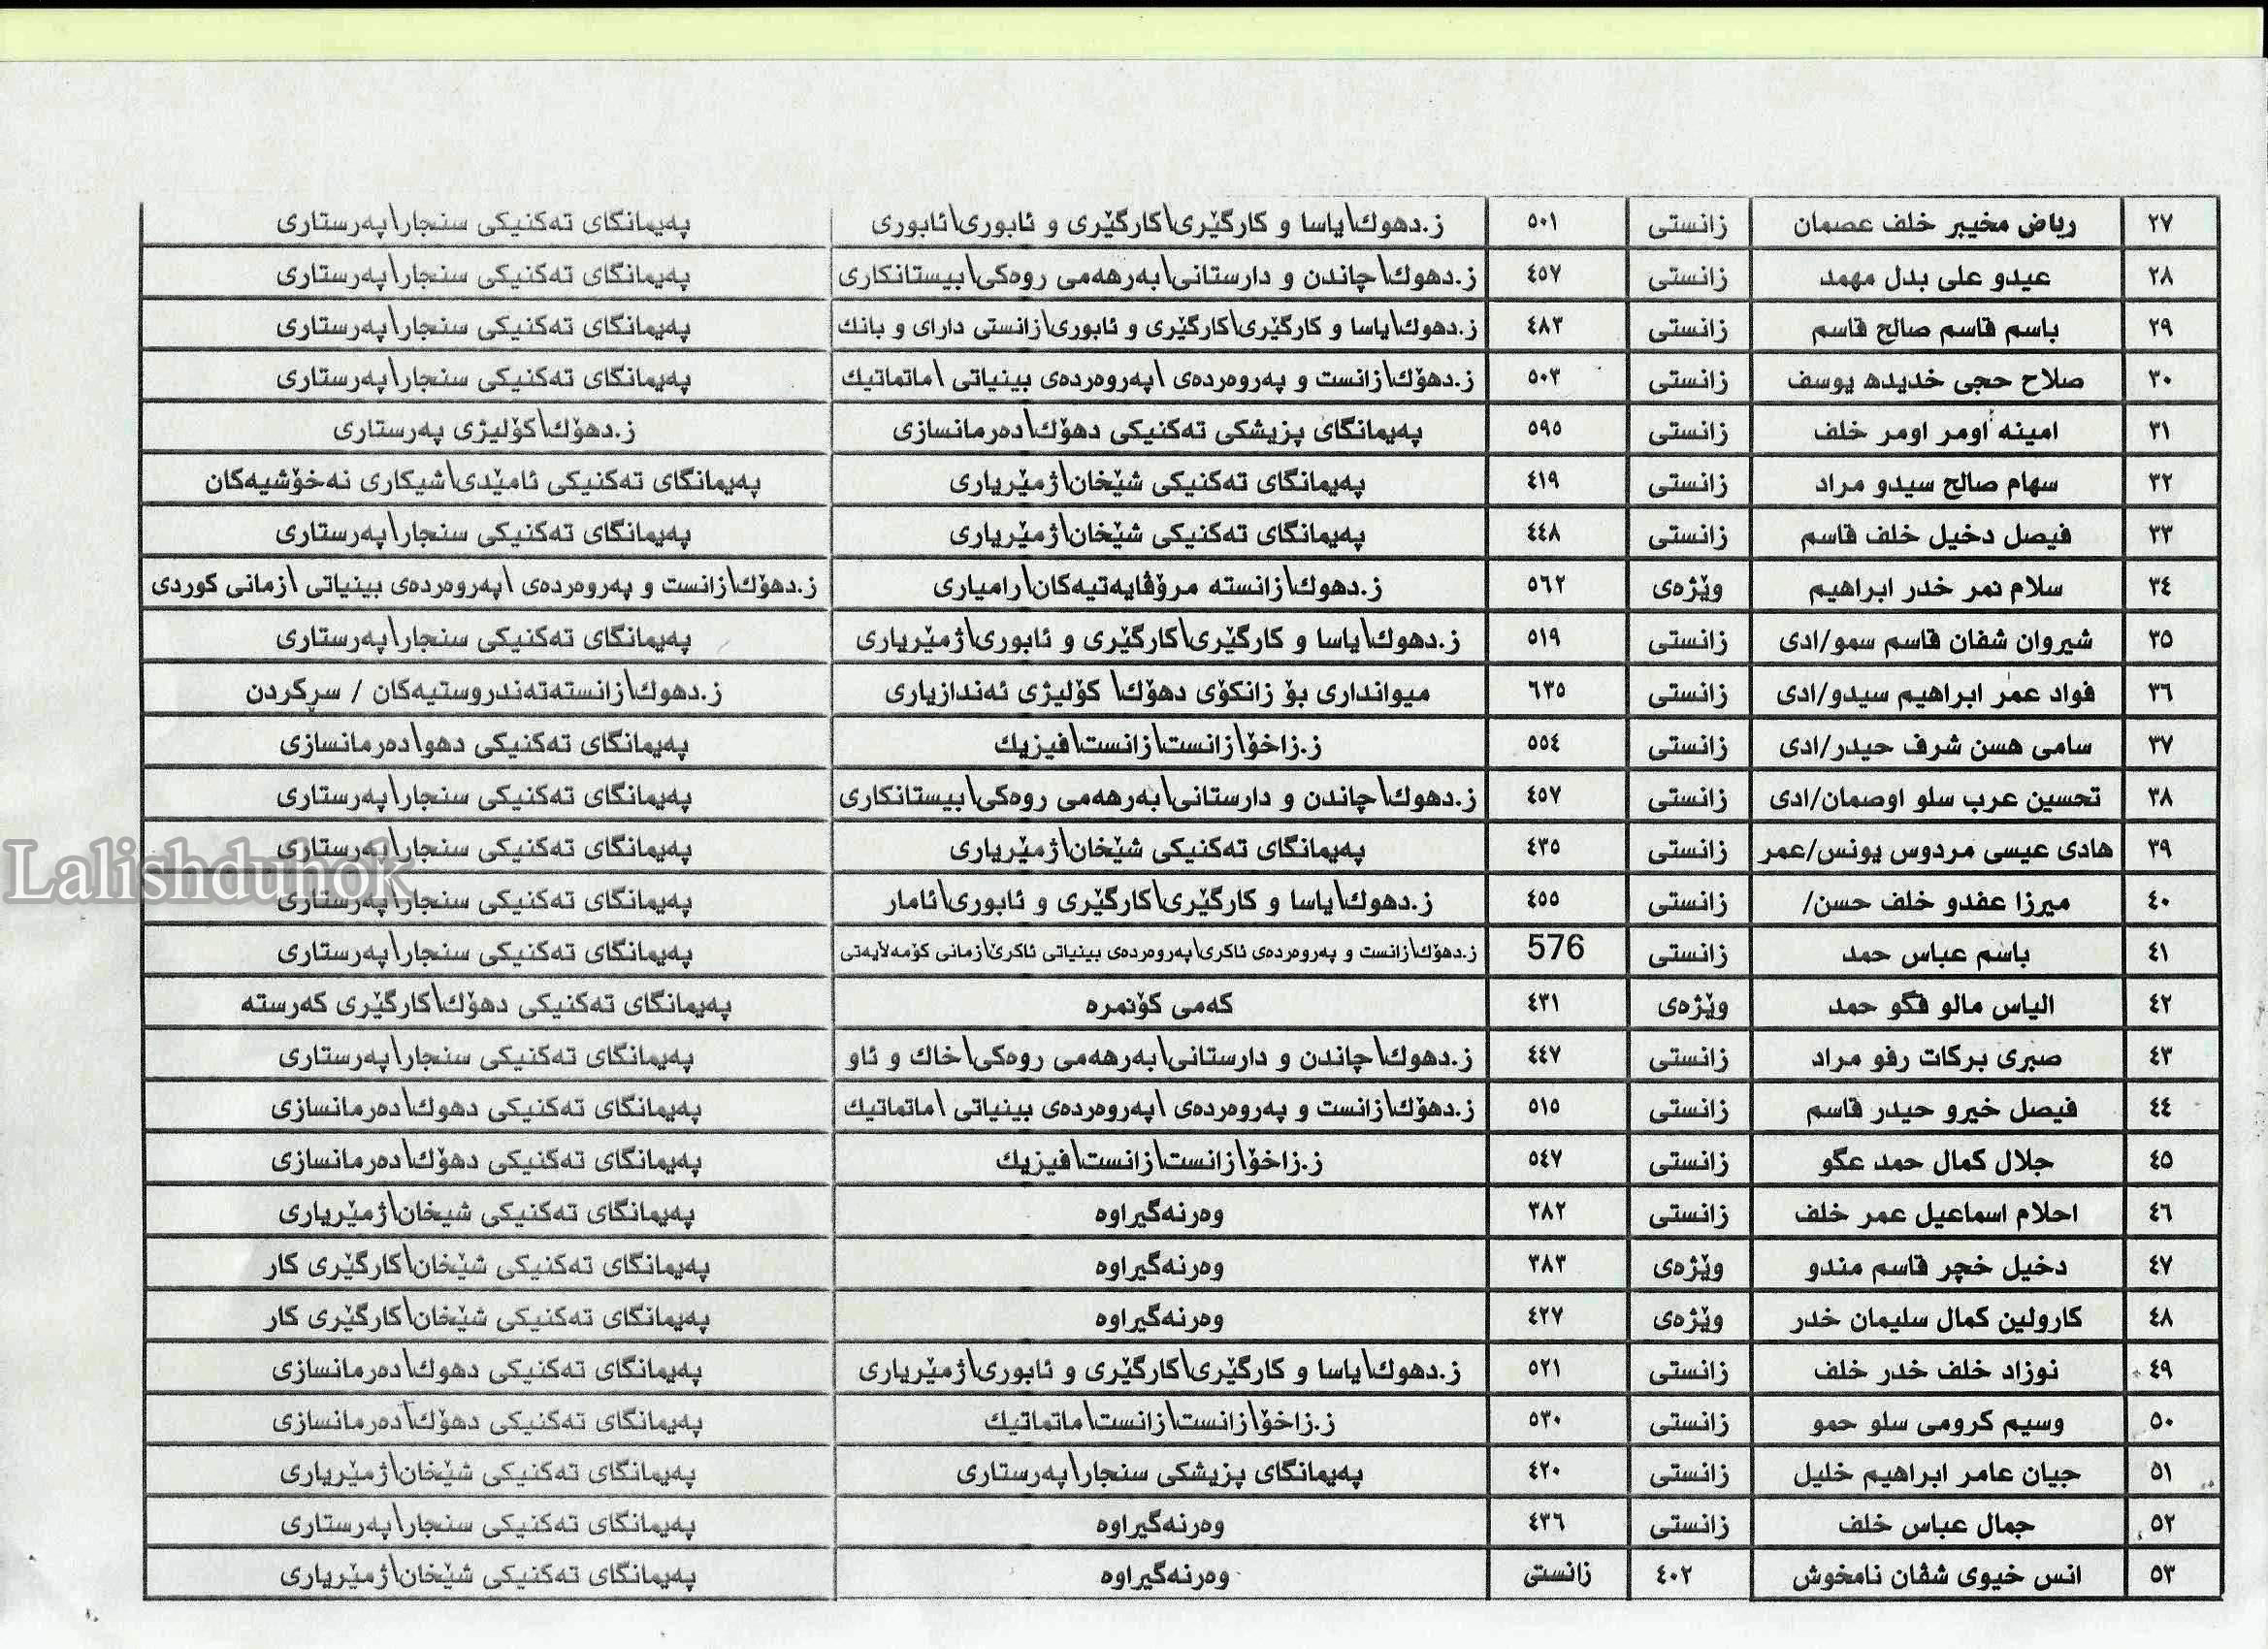 ٢٧ رياض مخيبر خلف عصمان زانستی ٥٠١ ز.دهوك\ياسا و كارگێری\كارگێری و ئابوری\ئابوری پەیمانگای تەكنیكی سنجار\پەرستاری
٢٨ عيدو علی بدل مهمد زانستی ٤٥٧ ز.دهوك\چاندن و دارستانی\بەرهەمی روەكی\بیستانكاری پەیمانگای تەكنیكی سنجار\پەرستاری
٢٩ باسم قاسم صالح قاسم زانستی ٤٨٣ ز.دهوك\ياسا و كارگێری\كارگێری و ئابوری\زانستی دارای و بانك پەیمانگای تەكنیكی سنجار\پەرستاری
٣٠ صلاح حجی خديده يوسف زانستی ٥٠٣ ز.دهۆك\زانست و پەروەردەی \پەروەردەی بینیاتی \ماتماتیك پەیمانگای تەكنیكی سنجار\پەرستاری
٣١ امينه اومر اومر خلف زانستی ٥٩٥ پەیمانگای پزیشكی تەكنیكی دهۆك\دەرمانسازی ز.دهۆك\كۆلیژی پەرستاری
٣٢ سهام صالح سيدو مراد زانستی ٤١٩ پەیمانگای تەكنیكی شێخان\ژمێریاری پەیمانگای تەكنیكی ئامێدی\شیكاری نەخۆشیەكان
٣٣ فيصل دخيل خلف قاسم زانستی ٤٤٨ پەیمانگای تەكنیكی شێخان\ژمێریاری پەیمانگای تەكنیكی سنجار\پەرستاری
٣٤ سلام نمر خدر ابراهيم وێژەی ٥٦٢ ز.دهوك\زانستە مرۆڤایەتیەكان\رامیاری ز.دهۆك\زانست و پەروەردەی \پەروەردەی بینیاتی \زمانی كوردی
٣٥ شيروان شفان قاسم سمو/ادی زانستی ٥١٩ ز.دهوك\ياسا و كارگێری\كارگێری و ئابوری\ژمێریاری پەیمانگای تەكنیكی سنجار\پەرستاری
٣٦ فواد عمر ابراهيم سيدو/ادی زانستی ٦٣٥ میوانداری بۆ زانكۆی دهۆك\ كۆلیژی ئەندازیاری ز.دهوك\زانستەتەندروستیەكان / سڕكردن
٣٧ سامی هسن شرف حيدر/ادی زانستی ٥٥٤ ز.زاخۆ\زانست\زانست\فیزیك پەیمانگای تەكنیكی دهو\دەرمانسازی
٣٨ تحسين عرب سلو اوصمان/ادی زانستی ٤٥٧ ز.دهوك\چاندن و دارستانی\بەرهەمی روەكی\بیستانكاری پەیمانگای تەكنیكی سنجار\پەرستاری
٣٩ هادی عيسی مردوس يونس/عمر زانستی ٤٣٥ پەیمانگای تەكنیكی شێخان\ژمێریاری پەیمانگای تەكنیكی سنجار\پەرستاری
Lalishduhok
٤٠ ميرزا عفدو خلف حسن/ زانستی ٤٥٥ ز.دهوك\ياسا و كارگێری\كارگێری و ئابوری\ئامار پەیمانگای تەكنیكی سنجار\پەرستاری
٤١ باسم عباس حمد زانستی 576 ز.دهۆك\زانست و پەروەردەی ئاكری\پەروەردەی بینیاتی ئاكرێ\زمانی كۆمەلایەتی پەیمانگای تەكنیكی سنجار\پەرستاری
٤٢ الياس مالو فگو حمد وێژەی ٤٣١ كەمی كۆنمرە پەیمانگای تەكنیكی دهۆك\كارگێری كەرستە
٤٣ صبری بركات رفو مراد زانستی ٤٤٧ ز.دهوك\چاندن و دارستانی\بەرهەمی روەكی\خاك و ئاو پەیمانگای تەكنیكی سنجار\پەرستاری
٤٤ فيصل خيرو حيدر قاسم زانستی ٥١٥ ز.دهۆك\زانست و پەروەردەی \پەروەردەی بینیاتی \ماتماتیك پەیمانگای تەكنیكی دهوك\دەرمانسازی
٤٥ جلال كمال حمد عگو زانستی ٥٤٧ ز.زاخۆ\زانست\زانست\فیزیك پەیمانگای تەكنیكی دهۆك\دەرمانسازی
٤٦ احلام اسماعيل عمر خلف زانستی ٣٨٢ وەرنەگیراوە پەیمانگای تەكنیكی شیخان\ژمێریاری
٤٧ دخيل خچر قاسم مندو وێژەی ٣٨٣ وەرنەگیراوە پەیمانگای تەكنیكی شێخان\كارگێری كار
٤٨ كارولين كمال سليمان خدر وێژەی ٤٢٧ وەرنەگیراوە پەیمانگای تەكنیكی شێخان\كارگێری كار
٤٩ نوزاد خلف خدر خلف زانستی ٥٢١ ز.دهوك\ياسا و كارگێری\كارگێری و ئابوری\ژمێریاری پەیمانگای تەكنیكی دهوك\دەرمانسازی
٥٠ وسيم كرومی سلو حمو زانستی ٥٣٠ ز.زاخۆ\زانست\زانست\ماتماتیك پەیمانگای تەكنیكی دهۆك\دەرمانسازی
٥١ جيان عامر ابراهيم خليل زانستی ٤٢٠ پەیمانگای پزیشكی سنجار\پەرستاری پەیمانگای تەكنیكی شێخان\ژمێریاری
٥٢ جمال عباس خلف زانستی ٤٣٦ وەرنەگیراوە پەیمانگای تەكنیكی سنجار\پەرستاری
٥٣ انس خيوی شڤان نامخوش ٤٠٢ زانستی وەرنەگیراوە پەیمانگای تەكنیكی شێخان\ژمێریاری